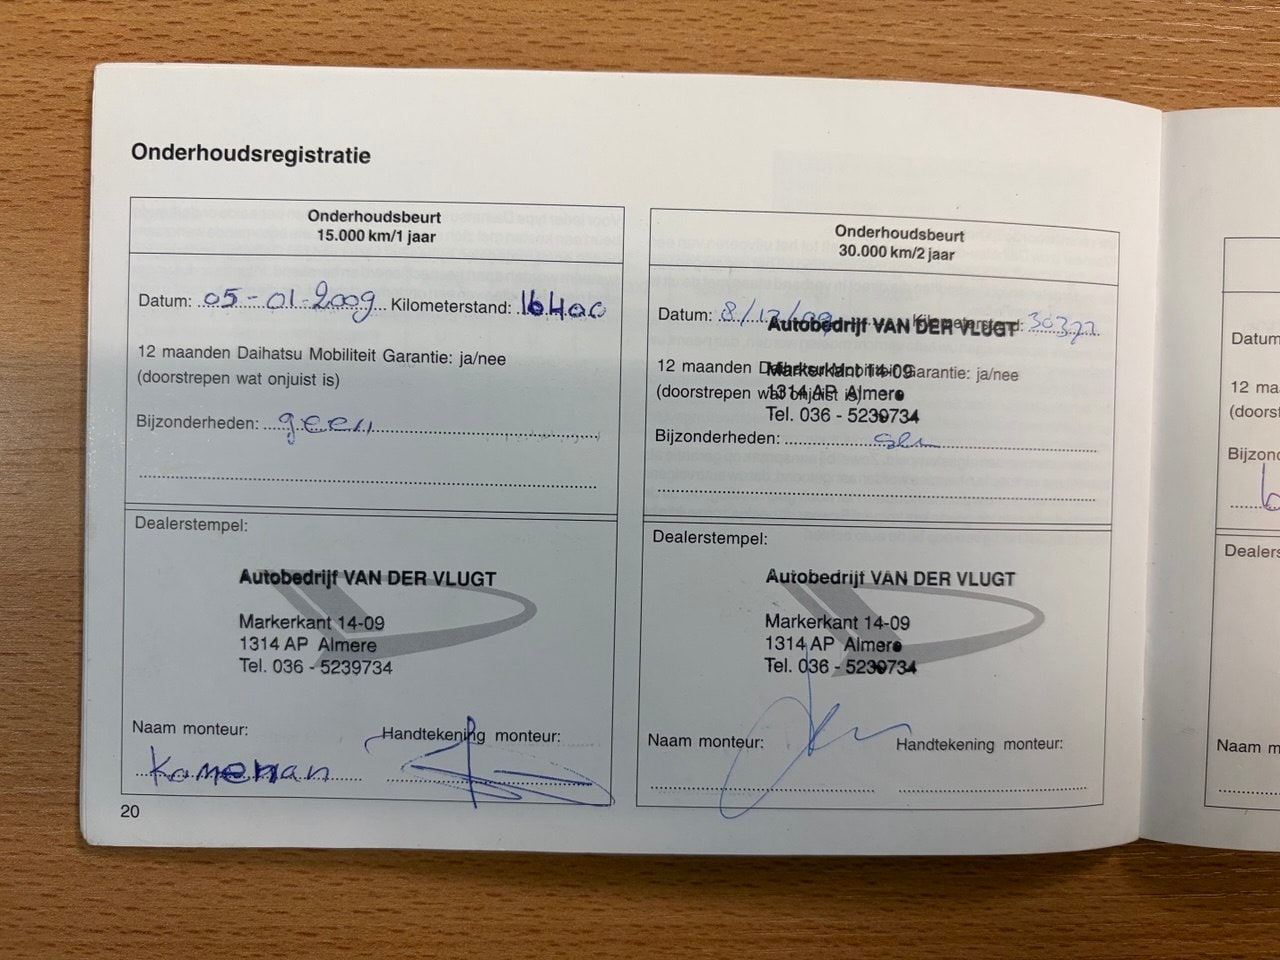 Onderhoudsregistratie
Onderhoudsbeurt
15.000 km/1 jaar
Datum: 05-01-2009 Kilometerstand: 16400
12 maanden Daihatsu Mobiliteit Garantie: ja/nee
(doorstrepen wat onjuist is)
Bijzonderheden: geen
Dealerstempel:
Autobedrijf VAN DER VLUGT
Markerkant 14-09
1314 AP Almere
Tel. 036 - 5239734
Naam monteur: Handtekening monteur:
20
Onderhoudsbeurt
30.000 km/2 jaar
Datum: 8/12/09 Kilometerstand: 30377
Autobedrijf VAN DER VLUGT
12 maanden Daihatsu Mobiliteit Garantie: ja/nee
Markerkant 14-09
(doorstrepen wat onjuist is)
1314 AP Almere
Tel. 036 - 5239734
Bijzonderheden:
Dealerstempel:
Autobedrijf VAN DER VLUGT
Markerkant 14-09
1314 AP Almere
Tel. 036 - 5239734
Naam monteur: Handtekening monteur:
Datum
12 ma
(doorst
Bijzond
Dealers
Naam m